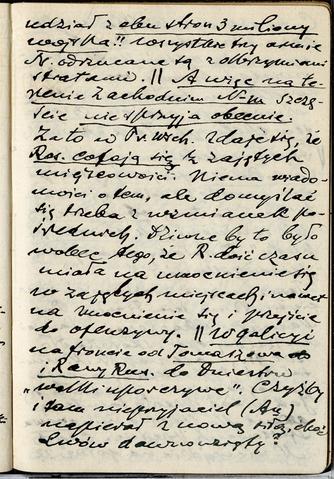 udział z obu stron 3 miliony
wojska!! Wszystkie trzy armie
N. odrzucane są z olbrzymiemi
stratami. || A więc na te-
renie zachodnim N-m szczę-
ście nie sprzyja obecnie.
Za to w Pr. Wsch. zdaje się, że
Ros. cofają się z zajętych
miejscowości. Niema wiado-
mości o tem, ale domyślać
się trzeba z wzmianek po-
średnich. Dziwne by to było
wobec tego, że R. dość czasu
miała na umocnienie się
w zajętych miejscach i nawet
na umocnienie się i przejście
do ofenzywy. || W Galicyi
na froncie od Tomaszowa
i Rawy Rus. do Dniestru
"walki uporczywe". Czyżby
i tam nieprzyjaciel (Au)
napierał z nową siłą, choć
Lwów dawno wzięty?